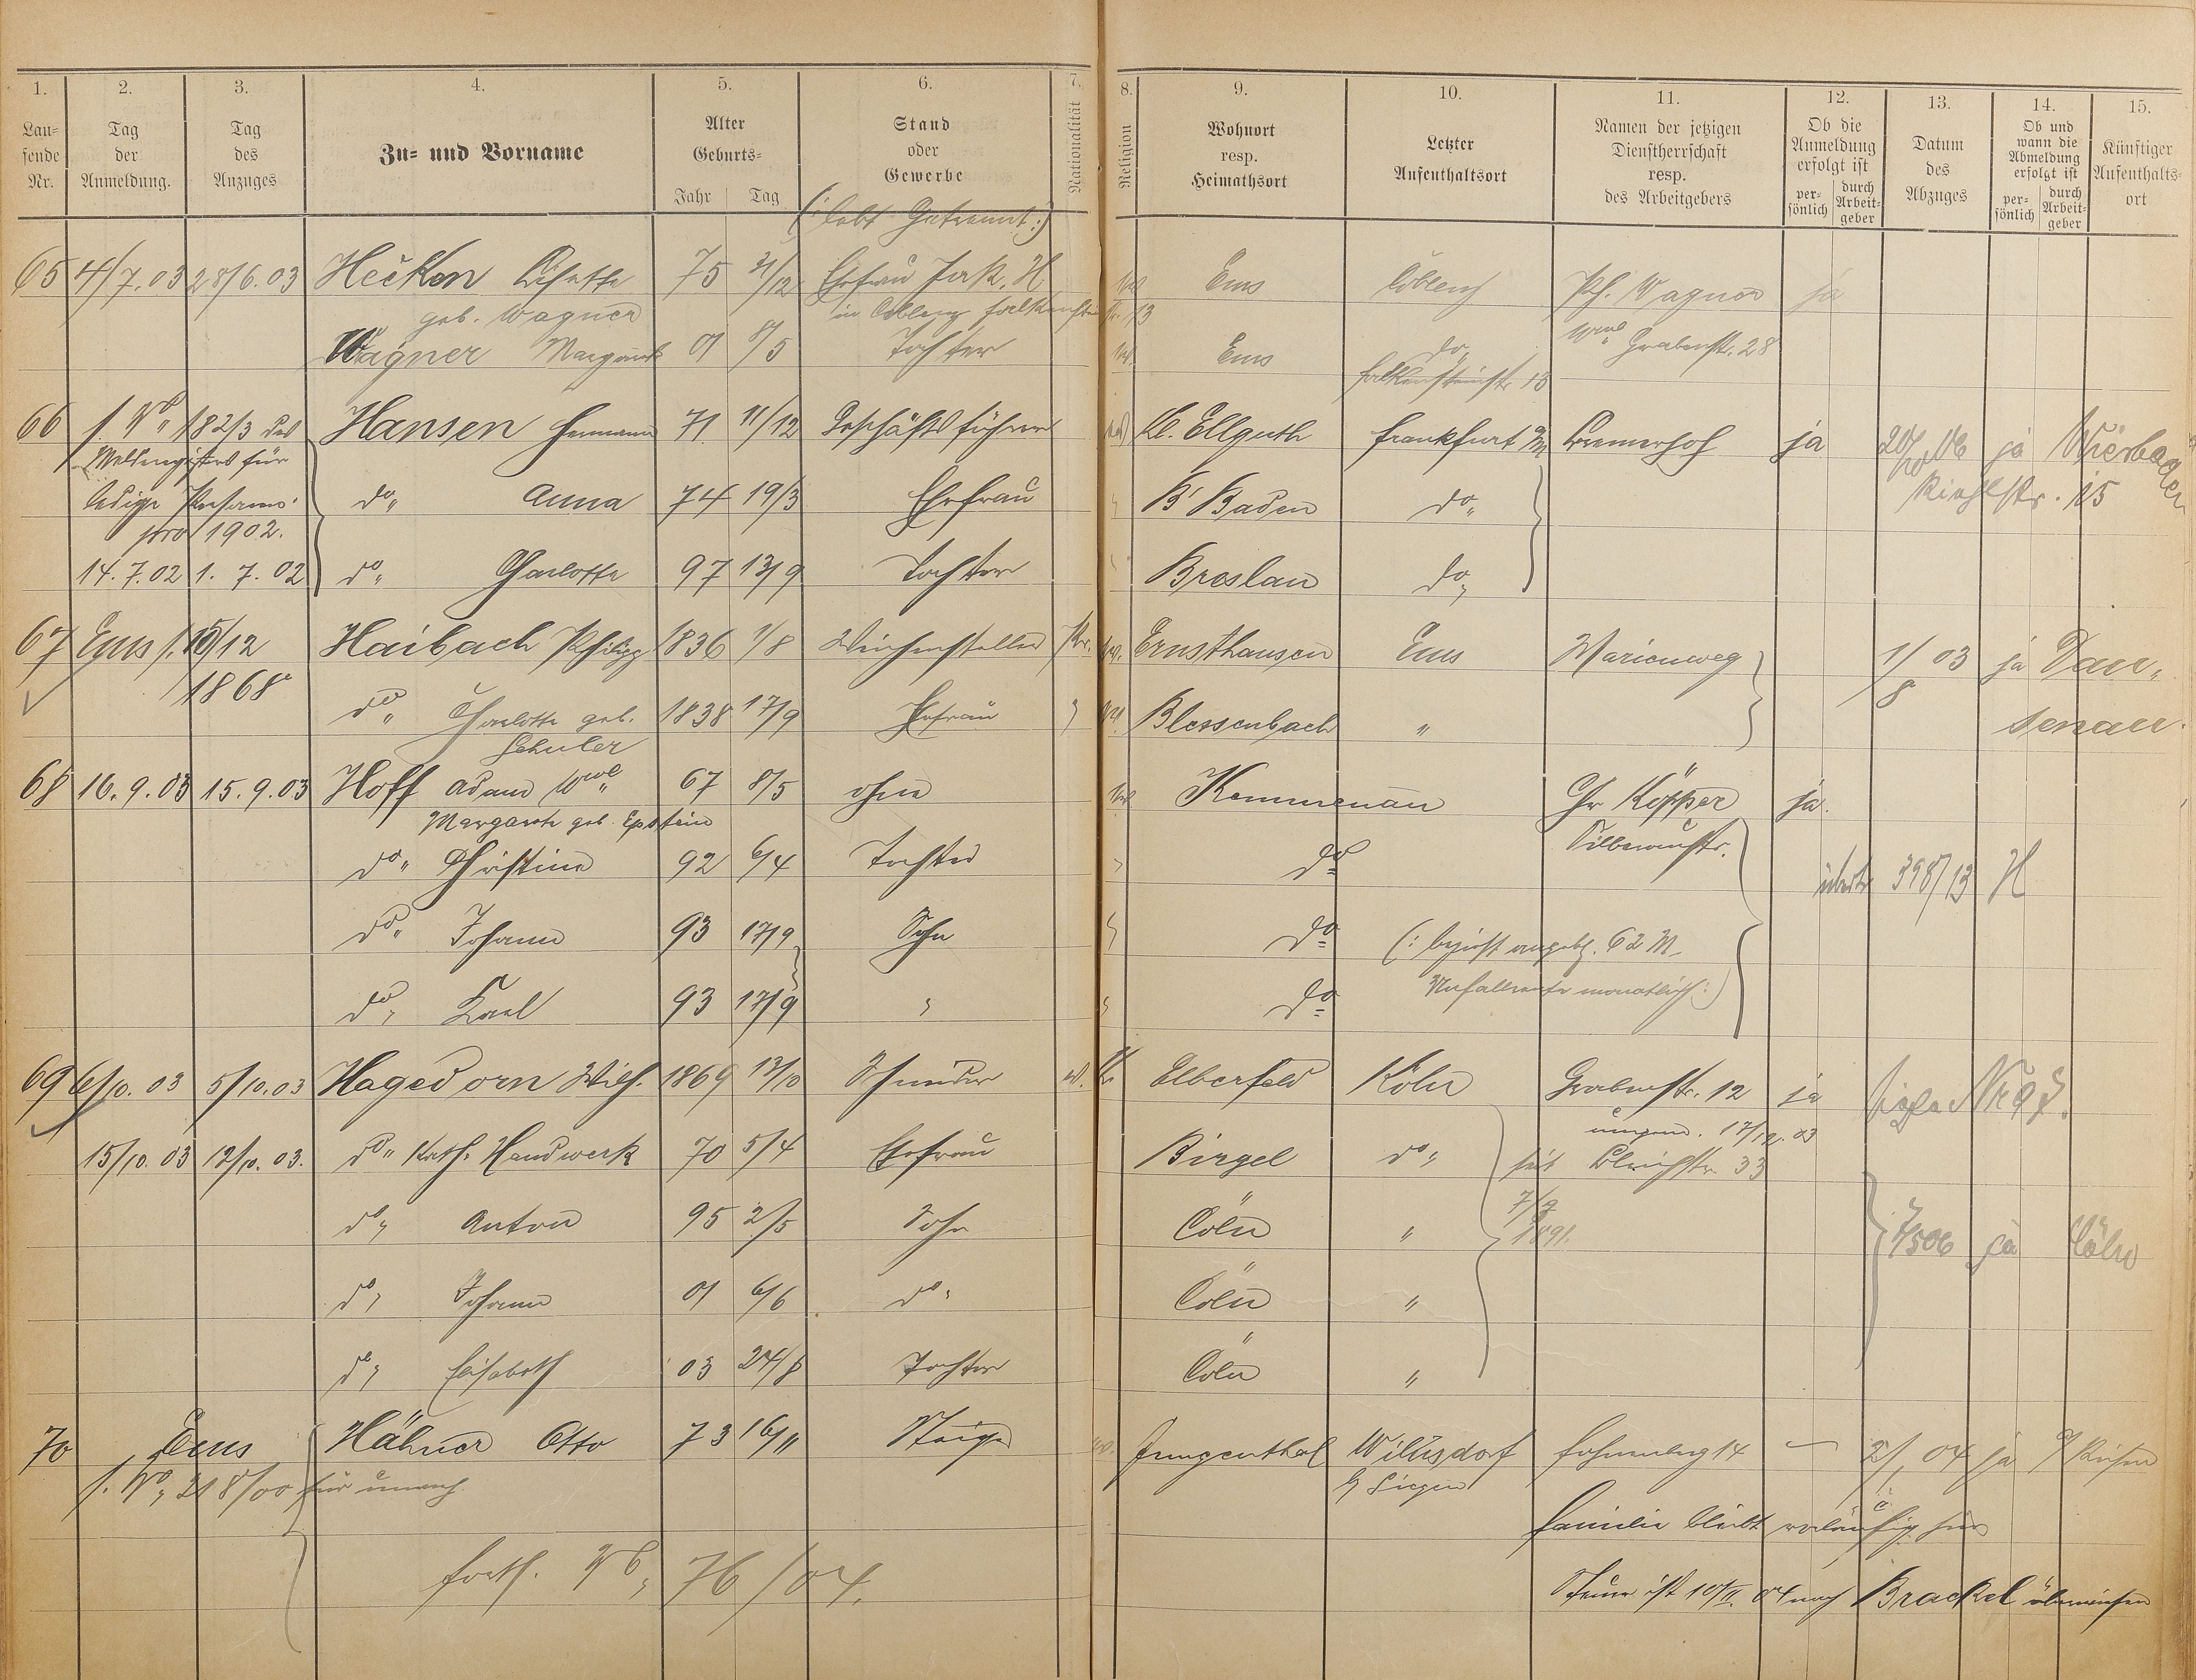 1. 2. 3. 4. 5. 6. 7. 8. 9. 10. 11. 12. 13. 14. 15.
Laufende Nr. Tag der Anmeldung. Tag des Anzuges Zu- und Vorname Alter Geburts- Jahr Tag Stand oder Gewerbe Nationalität Religion Wohnort resp. Heimathsort Letzter Aufenthaltsort Namen der jetzigen Dienstherrschaft resp. des Arbeitgebers Ob die Anmeldung erfolgt ist persönlich durch Arbeitgeber Datum des Abzuges Ob und wann die Abmeldung erfolgt ist persönlich durch Arbeitgeber Künftiger Aufenthaltsort
(: lebt Getrennt :)
65 4/7.03 28/6.03 Hecken Lisette 75 21/12 Ehefrau Jak. H. Ems Coblenz Ph. Wagner ja
geb. Wagner in Coblenz Falkenstein Str. 13
Wwe Grabenstr. 28
Wagner Margareth 01 8/5 Tochter Ems do
Falkensteinstr. 13
66 f. No 182/3 des Hansen Hermann 71 11/12 Geschäftsführer Kl. Ellguth Frankfurt a/M Bremerhof ja 20/10 06 ja Wiesbaden
Melderegisters für
Riehlstr. 15
ledige Personen do Anna 74 19/3 Ehefrau B' Baden do
pro 1902.
14.7.02 1.7.02 do Charlotte 97 13/9 Tochter Breslau do
67 Ems f. 15/12 Haibach Philipp 1836 1/8 Weichensteller Pr. Ernsthausen Ems Marienweg 1/8 03 ja Dausenau.
1868
do Charlotte geb. 1838 17/9 Ehefrau Blessenbach "
Schuler
68 16.9.03 15.9.03 Hoff Adam Wwe 67 8/5 ohne Kemmenau Chr Köpper ja.
Margareth geb. Epstein Silberaustr.
do Christine 92 6/4 Tochter do übertr 398/13 H
do Johann 93 17/9 Sohn do (: bezieht angebl. 62 M
do Karl 93 17/9 " do Unfallrente monatlich :)
69 6/10.03 5/10.03 Hagedorn Wilh. 1869 13/10 Schneider Elberfeld Köln Grabenstr. 12 ja siehe Nr 97.
umgem. 17/12.03
15/10.03 12/10.03. do Kath. Handwerk 70 5/4 Ehefrau Birgel do seit Bleichstr. 33
7/9
1891.
do Anton 95 2/5 Sohn Cöln " 7/5 06 ja Cöln
do Johann 01 6/6 do Cöln "
do Elisabeth 03 24/8 Tochter Cöln "
70 Ems Hähner Otto 73 16/11 Steiger Jungenthal Wilnsdorf Hohenberg 14 — 2/1 04 ja
b/ Siegen
f. No 218/00 für unverh.
Familie bleibt vorläufig hier
forts. No 76/04. Steuer ist 10/II. 04 nach Brackel überwiesen